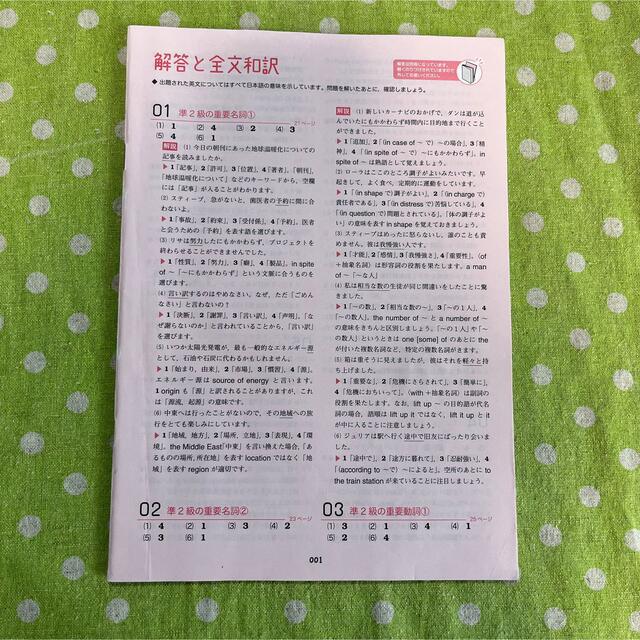 解答と全文和訳
解答は別冊になっています。
軽くのりづけされていますので
外してお使いください。
◆ 出題された英文についてはすべて日本語の意味を示しています。問題を解いたあとに、確認しましょう。
01 準2級の重要名詞①
21ページ
(1) 1 (2) 4 (3) 2 (4) 3
(5) 4 (6) 1
解説 (1) 今日の朝刊にあった地球温暖化についての
記事を読みましたか。
▶1「記事」、2「許可」、3「位置」、4「著者」。「朝刊」、
「地球温暖化について」などのキーワードから、空欄
には「記事」が入ることがわかります。
(2) スティーブ、急がないと、歯医者の予約に間に合
わないよ。
▶1「事故」、2「約束」、3「受付係」、4「予約」。医者
と会うための「予約」を表す語を選びます。
(3) リサは努力したにもかかわらず、プロジェクトを
終わらせることができませんでした。
▶1「性質」、2「努力」、3「癖」、4「製品」。in spite
of ~「~にもかかわらず」という文脈に合うものを
選びます。
(4) 言い訳するのはやめなさい。なぜ、ただ「ごめん
なさい」と言わないの?
▶1「決断」、2「謝罪」、3「言い訳」、4「声明」。「な
ぜ謝らないのか」と言われていることから、「言い訳」
を選びます。
(5) いつか太陽光発電が、最も一般的なエネルギー源
として、石油や石炭に代わるかもしれません。
▶1「始まり、由来」、2「市場」、3「慣習」、4「源」。
エネルギー源は source of energy と言います。
1 origin も「源」と訳されることがありますが、これ
は「源流、起源」の意味です。
(6) 中東へは行ったことがないので、その地域への旅
行をとても楽しみにしています。
▶1「地域、地方」、2「場所、立地」、3「表現」、4「環
境」。the Middle East「中東」を言い換えた場合、「あ
るものの場所、所在地」を表す location ではなく「地
域」を表す region が適切です。
02 準2級の重要名詞②
23ページ
(1) 4 (2) 1 (3) 3 (4) 2
(5) 3 (6) 1
解説 (1) 新しいカーナビのおかげで、ダンは道が込
んでいたにもかかわらず時間内に目的地まで行くこと
ができました。
▶1「追加」、2「(in case of ~ で) ~の場合」、3「精
神」、4「(in spite of ~ で) ~にもかかわらず」。in
spite of は熟語として覚えましょう。
(2) ローラはここのところ調子がよいみたいです。早
起きして、よく食べ、定期的に運動をしています。
▶1「(in shape で) 調子がよい」、2「(in charge で)
責任者である」、3「(in distress で) 苦悩している」、4
「(in question で) 問題とされている」。「体の調子がよ
い」の意味を表す in shape を覚えておきましょう。
(3) スティーブはめったに怒らないし、誰のことも責
めません。彼は我慢強い人です。
▶1「才能」、2「感情」、3「我慢強さ」、4「重要性」。〈of
+抽象名詞〉は形容詞の役割を果たします。a man
of ~「~な人」
(4) 私は相当な数の生徒が同じ間違いをしたことに驚
きました。
▶1「~の数」、2「相当な数の~」、3「~の1人」、4
「~の数人」。the number of ~ と a number of ~
の意味をきちんと区別しましょう。「~の1人」や「~
の数人」というときは one [some] of のあとに the
が付いた複数名詞など、特定の複数名がきます。
(5) 箱は重そうに見えましたが、彼はそれを軽々と持
ち上げました。
▶1「重要な」、2「危機にさらされて」、3「簡単に」、
4「危機におちいって」。〈with +抽象名詞〉は副詞の
役割を果たします。なお、lift up ~ の目的語が代名
詞の場合、語順は lift up it ではなく、lift it up と it
が中に入ることに注意しましょう。
(6) ジュリアは駅へ行く途中で旧友にばったり会いま
した。
▶1「途中で」、2「途方に暮れて」、3「忍耐強い」、4
「(according to ~で) ~によると」。空所のあとに to
the train station が来ていることに注目しましょう。
03 準2級の重要動詞①
25ページ
(1) 3 (2) 1 (3) 4 (4) 1
(5) 2 (6) 4
001